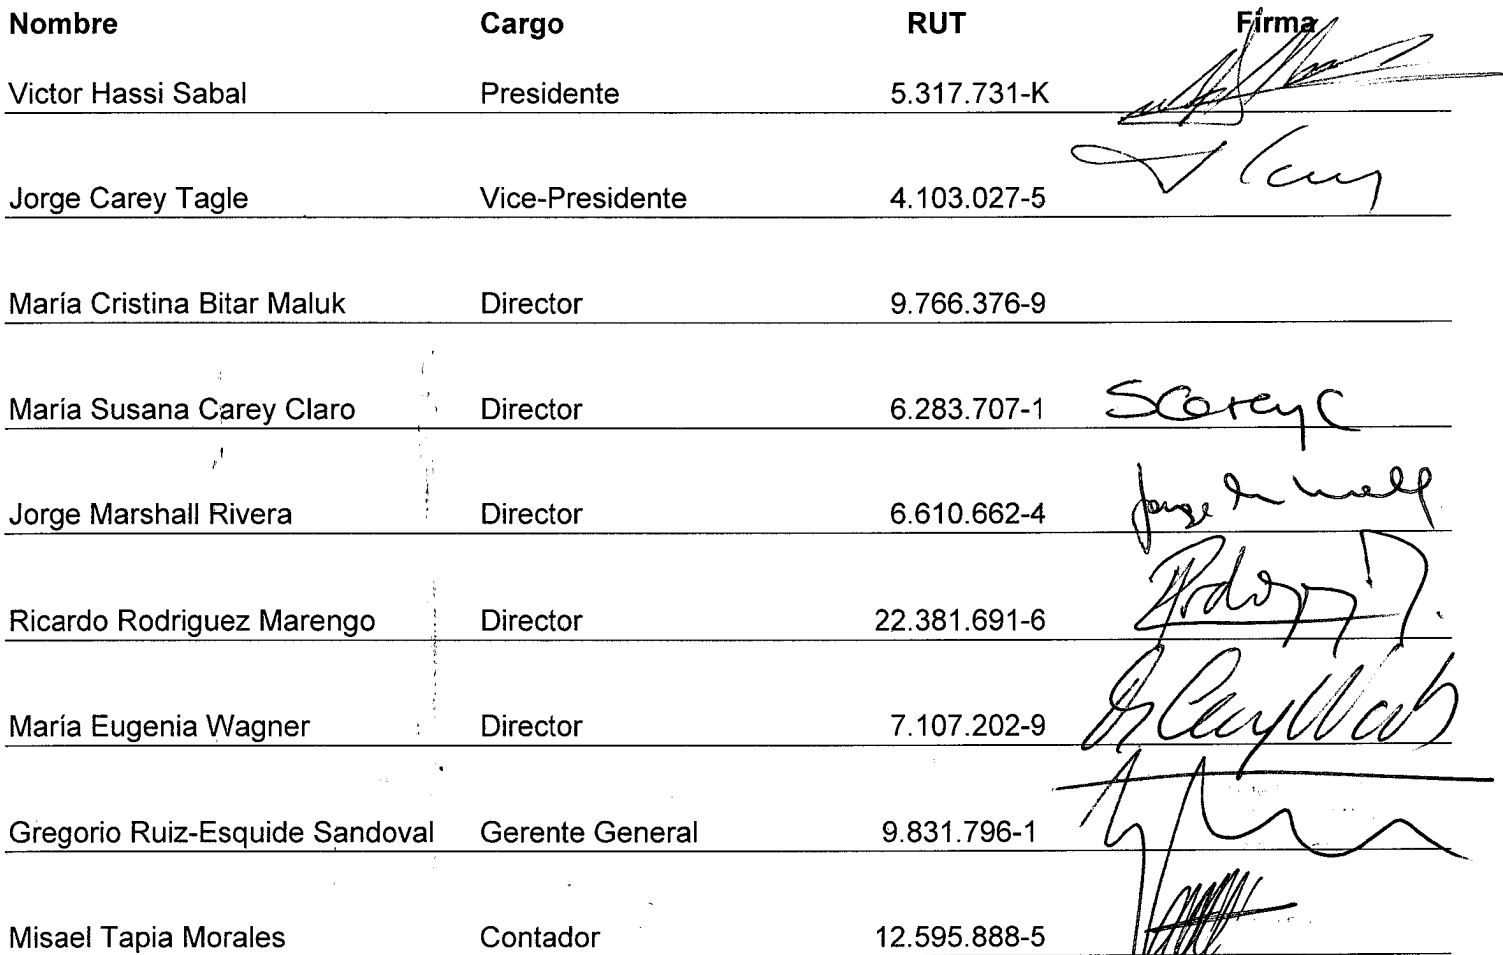 Nombre Cargo RUT Firma
Victor Hassi Sabal Presidente 5.317.731-K
Jorge Carey Tagle Vice-Presidente 4.103.027-5
María Cristina Bitar Maluk Director 9.766.376-9
María Susana Carey Claro Director 6.283.707-1 SCareyC
Jorge Marshall Rivera Director 6.610.662-4 Jorge
Ricardo Rodriguez Marengo Director 22.381.691-6
María Eugenia Wagner Director 7.107.202-9
Gregorio Ruiz-Esquide Sandoval Gerente General 9.831.796-1
Misael Tapia Morales Contador 12.595.888-5